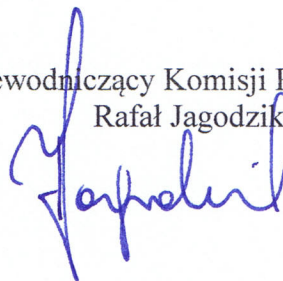 ewodniczący Komisji
Rafał Jagodzik
Jagodzik